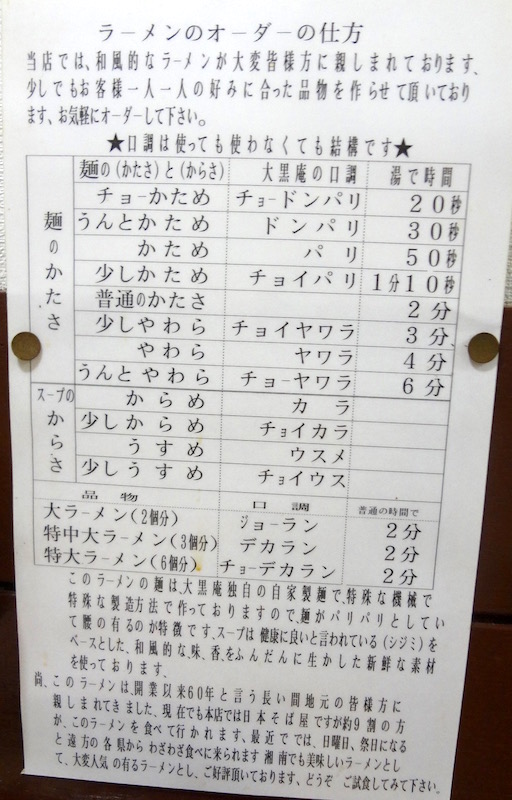 ラーメンのオーダーの仕方
当店では、和風的なラーメンが大変皆様方に親しまれております、
少しでもお客様一人一人の好みに合った品物を作らせて頂いており
ます、お気軽にオーダーして下さい。
★口調は使っても使わなくても結構です★
麺の(かたさ)と(からさ) 大黒庵の口調 湯で時間
麺のかたさ
チョーかため チョードンパリ 20秒
うんとかため ドンパリ 30秒
かため パリ 50秒
少しかため チョイパリ 1分10秒
普通のかたさ 2分
少しやわら チョイヤワラ 3分、
やわら ヤワラ 4分
うんとやわら チョーヤワラ 6分
スープのからさ
からめ カラ
少しからめ チョイカラ
うすめ ウスメ
少しうすめ チョイウス
品物 口調 普通の時間で
大ラーメン(2個分) ジョーラン 2分
特中大ラーメン(3個分) デカラン 2分
特大ラーメン(6個分) チョーデカラン 2分
このラーメンの麺は、大黒庵独自の自家製麺で、特殊な機械で
特殊な製造方法で作っておりますので、麺がパリパリとしてい
て腰の有るのが特徴です、スープは健康に良いと言われている(シジミ)を
ベースとした、和風的な味、香、をふんだんに生かした新鮮な素材
を使っております、
尚、このラーメンは開業以来60年と言う長い間地元の皆様方に
親しまれてきました、現在でも本店では日本そば屋ですが約9割の方
が、このラーメンを食べて行かれます、最近では、日曜日、祭日になる
と遠方の各県からわざわざ食べに来られます湘南でも美味しいラーメンとし
て、大変人気の有るラーメンとし、ご好評頂いております、どうぞ ご試食してみて下さい。